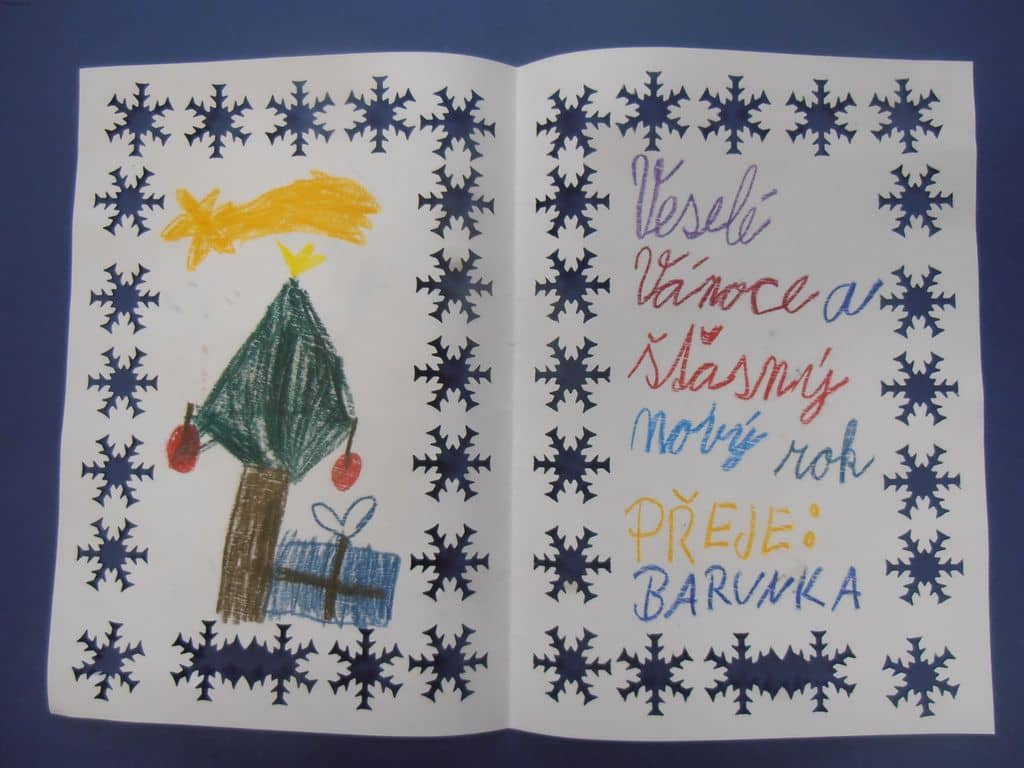 Veselé
Vánoce a
štasný
nový rok
PŘEJE:
BARUNKA